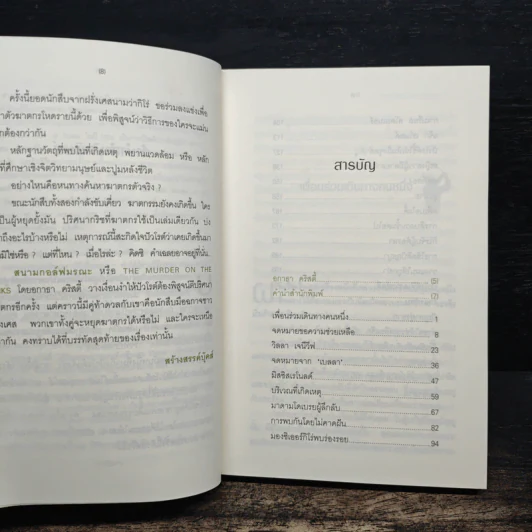 ครั้งนี้ยอดนักสืบจากฝรั่งเศสนามว่ากิโร่ ขอร่วมลงแข่งเพื่อ
าตัวฆาตกรโหดรายนี้ด้วย เพื่อพิสูจน์ว่าวิธีการของใครจะแม่น
กต้องกว่ากัน
หลักฐานวัตถุที่พบในที่เกิดเหตุ พยานแวดล้อม หรือ หลัก
ที่ศึกษาเชิงจิตวิทยามนุษย์และปูมหลังชีวิต
อย่างไหนคือหนทางค้นหาฆาตกรตัวจริง ?
ขณะนักสืบทั้งสองกำลังขับเคี่ยว ฆาตกรรมยังคงเกิดขึ้น ใคร
เป็นผู้หยุดยั้งมัน ปริศนากริชที่ฆาตกรใช้เป็นเล่มเดียวกัน บ่ง
าถึงอะไรบ้างหรือไม่ เหตุการณ์นี้สะกิดใจปัวโรต์ว่าเคยเกิดขึ้นมา
มิใช่หรือ ? แต่ที่ไหน ? เมื่อไรล่ะ ? คิดซิ คำเฉลยอาจอยู่ที่นั่น..
สนามกอล์ฟมรณะ หรือ THE MURDER ON THE
KS โดยอกาธา คริสตี้ วางเงื่อนงำให้ปัวโรต์ต้องพิสูจน์ตีปริศนา
ตกรอีกครั้ง แต่คราวนี้มีคู่ท้าดวลกับเขาคือนักสืบมือฉกาจชาว
งเศส พวกเขาทั้งคู่จะหยุดฆาตกรได้หรือไม่ และใครจะเหนือ
ากัน คงทราบได้ที่บรรทัดสุดท้ายของเรื่องเท่านั้น
สร้างสรรค์บุ๊คส์
สารบัญ
อกาธา คริสตี้ (5)
คำนำสำนักพิมพ์ (7)
เพื่อนร่วมเดินทางคนหนึ่ง 1
จดหมายขอความช่วยเหลือ 8
วิลลา เจนีวีฟ 23
จดหมายจาก 'เบลลา' 36
มิสซิสเรโนลด์ 47
บริเวณที่เกิดเหตุ 59
มาดามโดเบรยผู้ลึกลับ 67
การพบกันโดยไม่คาดฝัน 82
มองซิเออร์กิโร่พบร่องรอย 94